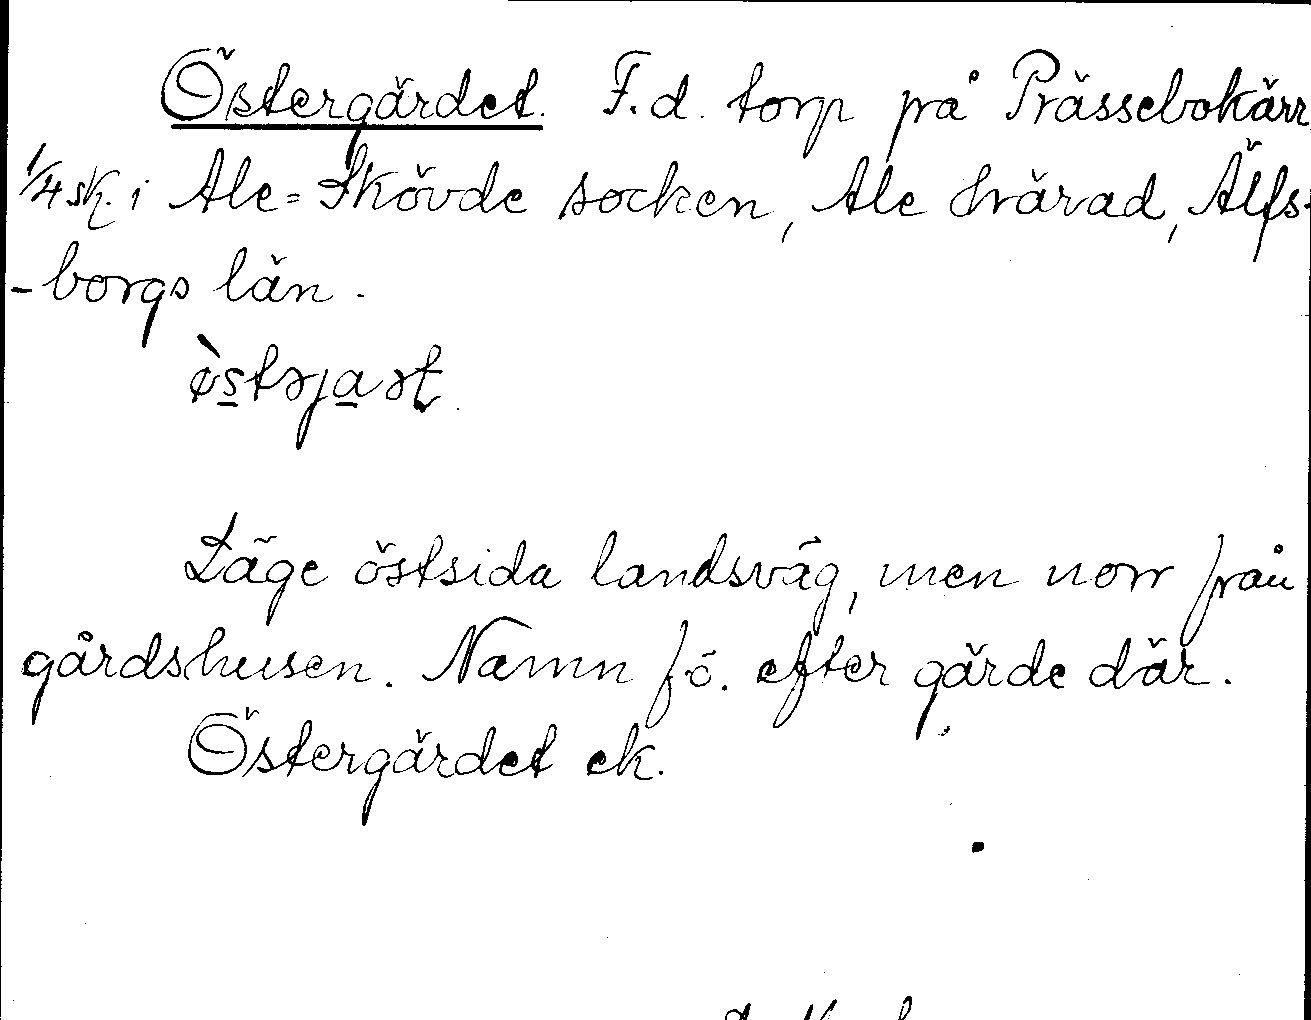 Östergärdet. F.d. torp på Prässebokärr
1/4 sk. i Ale-Skövde socken, Ale härad, Älfs-
-borgs län.
Läge östsida landsväg, men norr från
gårdshusen. Namn fö. efter gärde där.
Östergärdet ek.